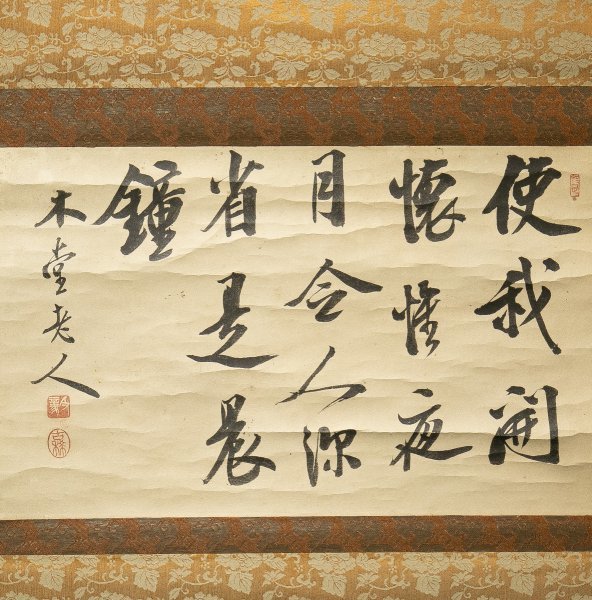 使我開
懷惟夜
月令人深
省是晨
鐘
木堂老人